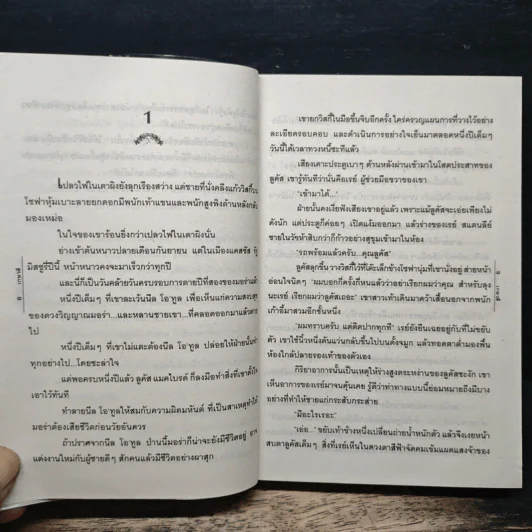 1
เปลวไฟในเตาผิงยังลุกเรืองสว่าง แต่ชายที่นั่งคลึงแก้ววิสกี้บน
โซฟาหุ้มเบาะลายยกดอกมีพนักเท้าแขนและพนักสูงพิงด้านหลังกลับ
มองเหม่อ
ในใจของเขาร้อนยิ่งกว่าเปลวไฟในเตาผิงนั้น
ย่างเข้าต้นหนาวปลายเดือนกันยายน แต่ในเมืองแคสซัส
มิสซูรี่ปีนี้ หน้าหนาวคงจะมาเร็วกว่าทุกปี
และนี่ก็เป็นวันคล้ายวันครบรอบการตายปีที่สองของมอร่าแล้ว
หนึ่งปีเต็มๆ ที่เขาละเว้นนีล โอ'ทูล เพื่อเห็นแก่ความสงบสุข
ของดวงวิญญาณมอร่า...และหลานชายเขา...ที่คลอดออกมาแล้วตาย
ไป
หนึ่งปีเต็มๆ ที่เขาไม่แตะต้องนีล โอ'ทูล ปล่อยให้ฝ่ายนั้นทำ
ทุกอย่างไป...โดยชะล่าใจ
แต่พอครบหนึ่งปีแล้ว ลูคัส แมคไบรด์ ก็ลงมือทำสิ่งที่เขาตั้งใจ
เอาไว้ทันที
ทำลายนีล โอ'ทูลให้สมกับความผิดมหันต์ ที่เป็นสาเหตุทำให้
มอร่าต้องเสียชีวิตก่อนวัยอันควร
ถ้าปราศจากนีล โอ'ทูล ป่านนี้มอร่าก็น่าจะยังมีชีวิตอยู่ อาจ
แต่งงานใหม่กับผู้ชายดีๆ สักคนแล้วมีชีวิตอย่างผาสุก
เขายกวิสกี้ในมือขึ้นจิบอีกครั้ง ใคร่ครวญแผนการที่วางไว้อย่าง
ละเอียดรอบคอบ และดำเนินการอย่างใจเย็นมาตลอดหนึ่งปีเต็มๆ
วันนี้ได้เวลาทวงหนี้ซะทีแล้ว
เสียงเคาะประตูเบาๆ ด้านหลังผ่านเข้ามาในโสตประสาทของ
ลูคัส เขารู้ทันทีว่านั่นคือเรย์ ผู้ช่วยมือขวาของเขา
"เข้ามาได้..."
ฝ่ายนั้นคงเงี่ยฟังเสียงเขาอยู่แล้ว เพราะแม้ลูคัสจะเอ่ยเพียงไม่
ดังนัก แต่ประตูก็ค่อยๆ เปิดแง้มออกมา แล้วร่างของเรย์ สแตนลีย์
ชายในวัยห้าสิบกว่าก็ก้าวอย่างสุขุมเข้ามาในห้อง
"รถพร้อมแล้วครับ...คุณลูคัส"
ลูคัสลุกขึ้น วางวิสกี้ไว้ที่โต๊ะเล็กข้างโซฟานุ่มที่เขานั่งอยู่ ส่ายหน้า
อ่อนใจนิดๆ "ผมบอกกี่ครั้งกี่หนแล้วว่าอย่าเรียกผมว่าคุณ สำหรับลุง
นะเรย์ เรียกผมว่าลูคัสเถอะ" เขาสาวเท้าเดินมาคว้าเสื้อนอกจากพนัก
เก้าอี้มาสวมอีกชั้นหนึ่ง
"ผมทราบครับ แต่ติดปากทุกที" เรย์ยังยืนเฉยอยู่กับที่ไม่ขยับ
ตัว เขาใช้นิ้วหนึ่งดันแว่นกลับขึ้นไปบนดั้งจมูก แล้วทอดตาต่ำมองพื้น
ห้องใกล้ปลายรองเท้าของตัวเอง
กิริยาอาการนั้นเป็นเหตุให้ร่างสูงตระหง่านของลูคัสชะงัก เขา
เห็นอาการของเรย์มาจนคุ้นเคย รู้ดีว่าท่าทางแบบนี้ย่อมหมายถึงมีบาง
อย่างที่ทำให้ชายแก่กระสับกระส่าย
"มีอะไรเรอะ"
"เอ่อ..." ขยับเท้าข้างหนึ่งเปลี่ยนถ่ายน้ำหนักตัว แล้วจึงเงยหน้า
สบตาลูคัสเต็มๆ สิ่งที่เรย์เห็นในดวงตาสีฟ้าจัดคมเข้มแผดแสงจ้าของ